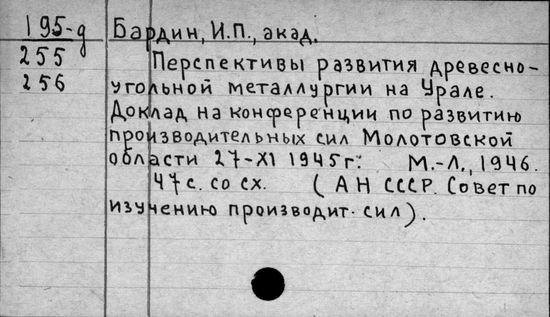 195-д Бардин, И.П., акад.
255 Перспективы развития древесно-
256 угольной металлургии на Урале.
Доклад на конференции по развитию
производительных сил Молотовской
области 27-XI 1945г. М.-Л., 1946.
47с. со сх. (АН СССР. Совет по
изучению производит. сил).